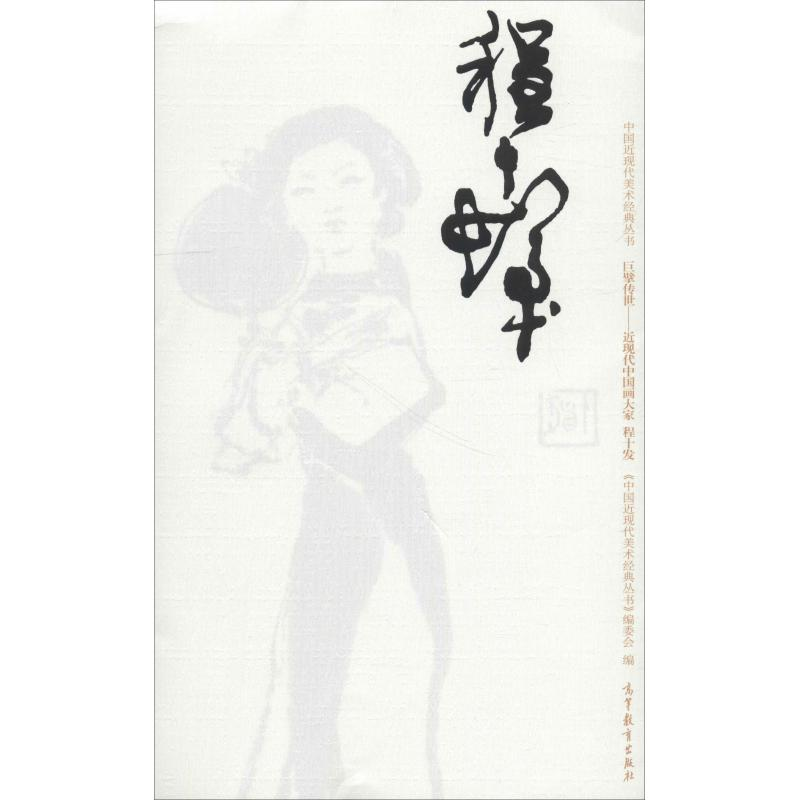 程十发
中国近现代美术经典丛书
巨擘传世——近现代中国画大家 程十发
《中国近现代美术经典丛书》编委会 编
高等教育出版社